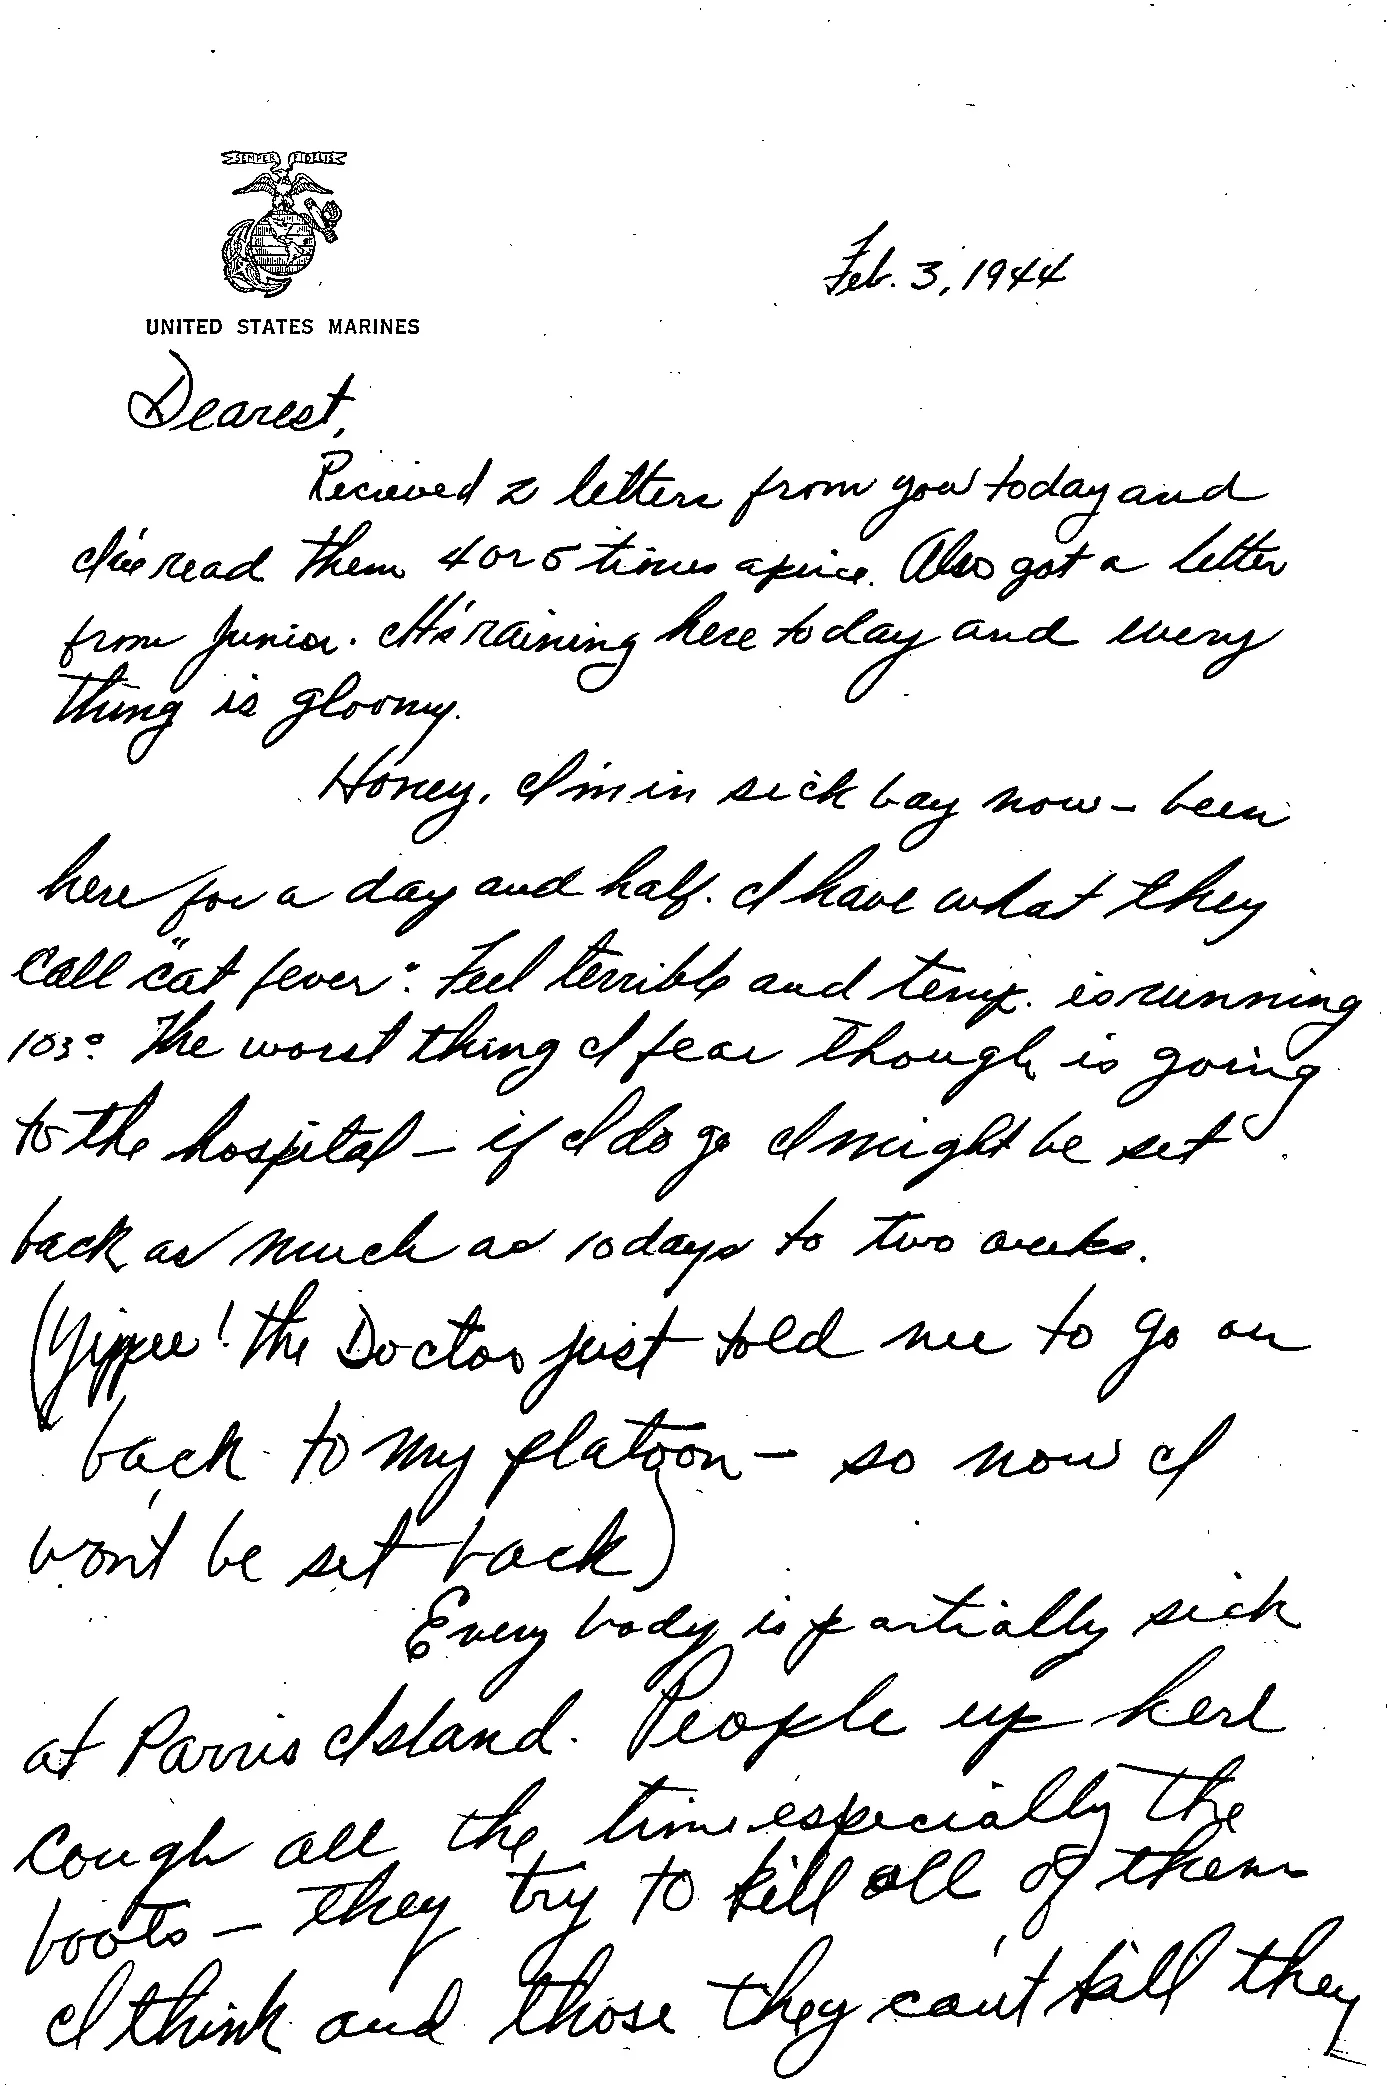 SEMPER FIDELIS
UNITED STATES MARINES
Feb. 3, 1944
Dearest,
Recieved 2 letters from you today and
I've read them 4 or 5 times apiece. Also got a letter
from Junior. It's raining here today and every
thing is gloomy.
Honey, I'm in sick bay now – been
here for a day and half. I have what they
call "cat fever". Feel terrible and temp. is running
103°. The worst thing I fear though is going
to the hospital – if I do go I might be set
back as much as 10 days to two weeks.
(Yippee! the Doctor just told me to go on
back to my platoon – so now I
won't be set back)
Every body is partially sick
at Parris Island. People up here
cough all the time especially the
boots – they try to kill all of them
I think and those they can't kill they